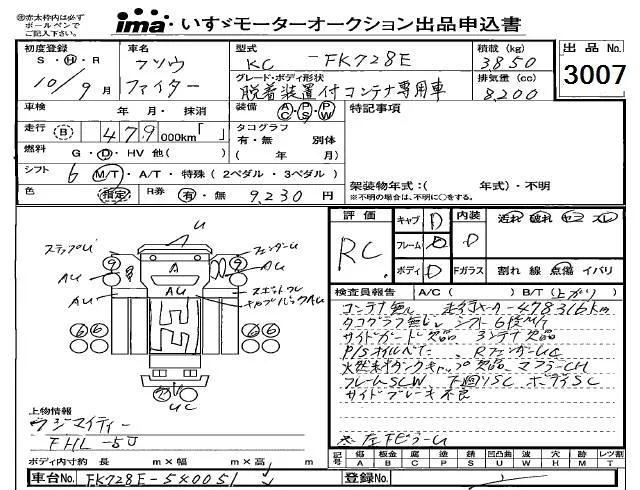 ㊟赤太枠内は必ず
ボールペンで
ご記入下さい。
ima・いすゞモーターオークション出品申込書
初度登録
S・H・R
10/9月
車名
フソウ
ファイター
型式
KC -FK728E
グレード・ボディ形状
脱着装置付コンテナ専用車
積載(kg)
3850
排気量(cc)
8,200
出品No.
3007
車検 年・月・抹消
装備 AC・PS・PW
特記事項
走行 (B) 479 000km「 」
タコグラフ
有・無 別体
( 年 月)
燃料 G・D・HV 他( )
シフト 6 M/T・A/T・特殊(2ペダル・3ペダル)
架装物年式:( 年式)・不明
※不明の場合は、不明に○をする。
色 指定 R券 有・無 9,230円
評価
RC
キャブ D
フレーム D
ボディ D
内装 D
汚れ 破れ ヤコ スレ
Fガラス 割れ 線 点傷 イバリ
U
ステップU
フェンダーU
9 9
AU A AU
AU
キャブバックAU
6 6 6 6
UC
検査員報告 A/C( ) B/T(上がり)
コンテナ無し 走行メーター478316km
タコグラフ無し シフト6段M/T
サイドガード欠品
P/Sオイルモレ RフェンダーUC
燃料タンクキャップ欠品 マフラーCH
フレームSCW 下回りSC ボデーSC
サイドブレーキ不良
上物情報
フジマイティー
FHL-5J
ボディ内寸約 長 m×幅 m×高 m
記号 傷A 板金B 腐C 塗P 錆S 凹凸曲U 波W 穴H 跡M レスT
車台No. FK728E-5×0051
登録No.